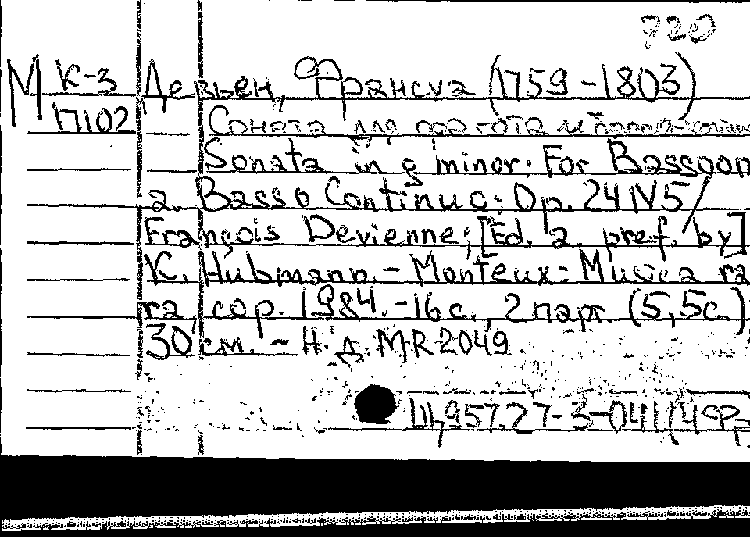 720
М К-3 Девьен, Франсуа (1759-1803)
17102 Соната для фагота и
Sonata in g minor: For Bassoon
a. Basso Continuo: Op. 24 N5 /
François Devienne; [Ed. a. pref. by]
K. Hubmann. - Monteux: Musica ra
ra, cop. 1984. - 16 с., 2 парт. (5,5 с.)
30 см. - Н. д. MR 2049
Щ957.27-3-041(4Фр